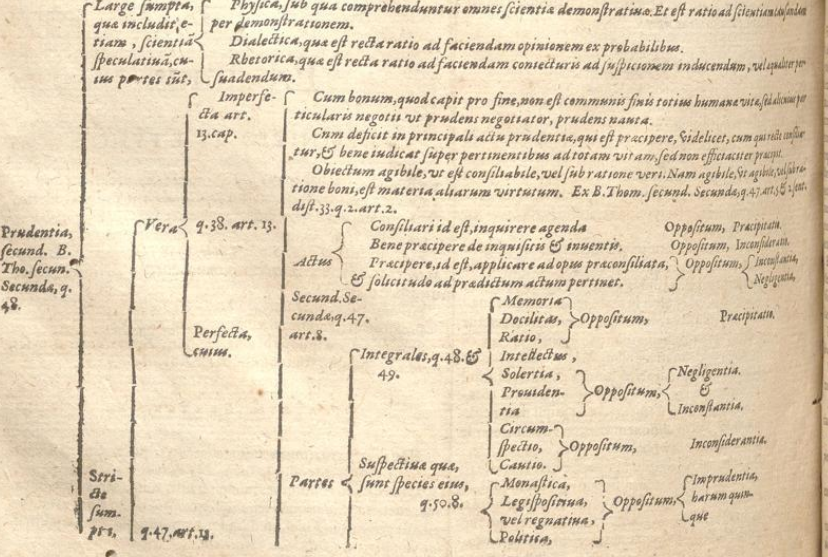 Large sumpta,
quæ includit, e-
tiam, scientiã
speculatiuã, cu-
ius partes sũt,
Physica, sub qua comprehenduntur omnes scientiæ demonstratiuæ. Et est ratio ad scientiam
per demonstrationem.
Dialectica, quæ est recta ratio ad faciendam opinionem ex probabilibus.
Rhetorica, quæ est recta ratio ad faciendam coniecturis ad suspicionem inducendam, vel
suadendum.
Prudentia,
secund. B.
Tho. secun.
Secundæ, q.
48.
Stri-
cte
sum-
pta,
Vera
q. 47. art. 13.
Imperfe-
cta art.
13. cap.
q. 38. art. 13.
Perfecta,
cuius.
Cum bonum, quod capit pro fine, non est communis finis totius humanæ vitæ, sed alicuius
ticularis negotii vt prudens negotiator, prudens nauta.
Cum deficit in principali actu prudentiæ, qui est præcipere, videlicet, cum qui recte consilia-
tur, & bene iudicat super pertinentibus ad totam vitam, sed non efficaciter præcipit.
Obiectum agibile, vt est consiliabile, vel sub ratione veri. Nam agibile, vt agibile, vel sub ra-
tione boni, est materia aliarum virtutum. Ex B. Thom. secund. Secundæ, q. 47. art. 5 & 2. sent.
dist. 33. q. 2. art. 2.
Actus
Secund. Se-
cundæ, q. 47.
art. 8.
Consiliari id est, inquirere agenda Oppositum, Præcipitatio.
Bene præcipere de inquisitis & inuentis. Oppositum, Inconsideratio.
Præcipere, id est, applicare ad opus præconsiliata,
& solicitudo ad prædictum actum pertinet.
Oppositum,
Inconstantia,
Negligentia,
Partes
Integrales, q. 48. &
49.
Memoria
Docilitas,
Ratio,
Oppositum, Præcipitatio.
Intellectus,
Solertia,
Prouiden-
tia
Oppositum,
Negligentia.
&
Inconstantia.
Circum-
spectio,
Cautio.
Oppositum, Inconsiderantia.
Suspectiuæ quæ,
sunt species eius,
q. 50. 8.
Monastica,
Legispositiua,
vel regnatiua,
Politica,
Oppositum,
Imprudentia,
harum quin-
que